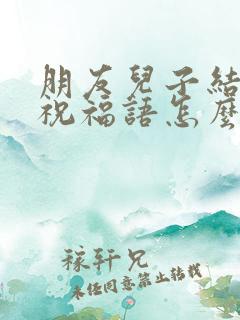 朋友兒子結
祝福語怎麼
稼軒兄
未经同意禁止转载